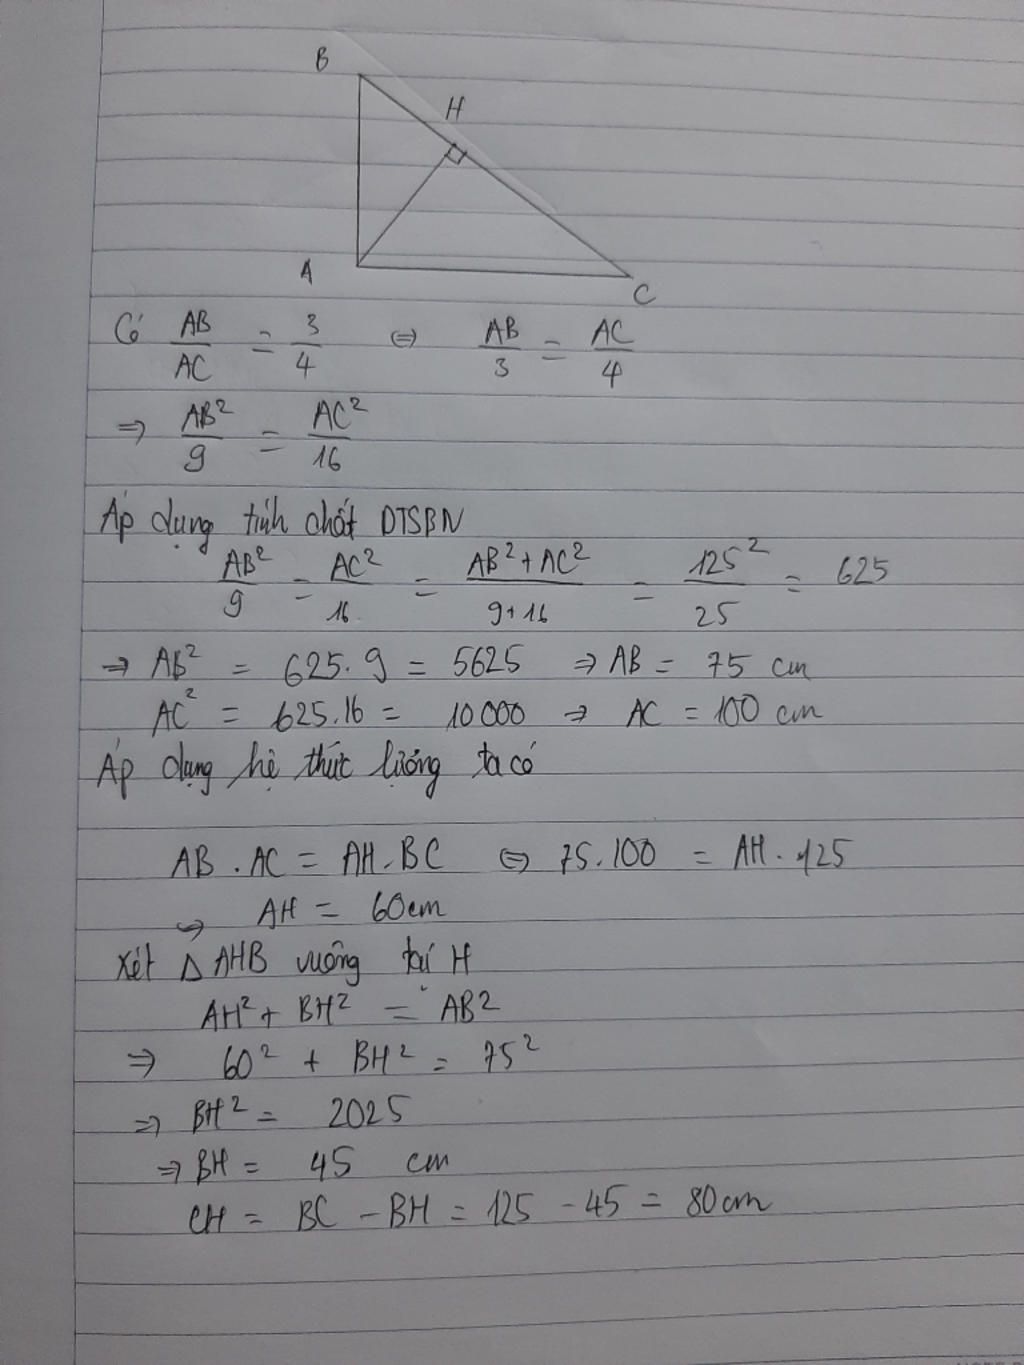 B
H
A
C
Có AB/AC = 3/4 ⇔ AB/3 = AC/4
⇒ AB²/9 = AC²/16
Áp dụng tính chất DTSBN
AB²/9 = AC²/16 = AB²+AC²/9+16 = 125²/25 = 625
⇒ AB² = 625.9 = 5625 ⇒ AB = 75 cm
AC² = 625.16 = 10000 ⇒ AC = 100 cm
Áp dụng hệ thức lượng ta có
AB . AC = AH . BC ⇔ 75.100 = AH . 125
⇔ AH = 60cm
Xét △AHB vuông tại H
AH² + BH² = AB2
⇒ 60² + BH² = 75²
⇒ BH² = 2025
⇒ BH = 45 cm
CH = BC - BH = 125 - 45 = 80cm